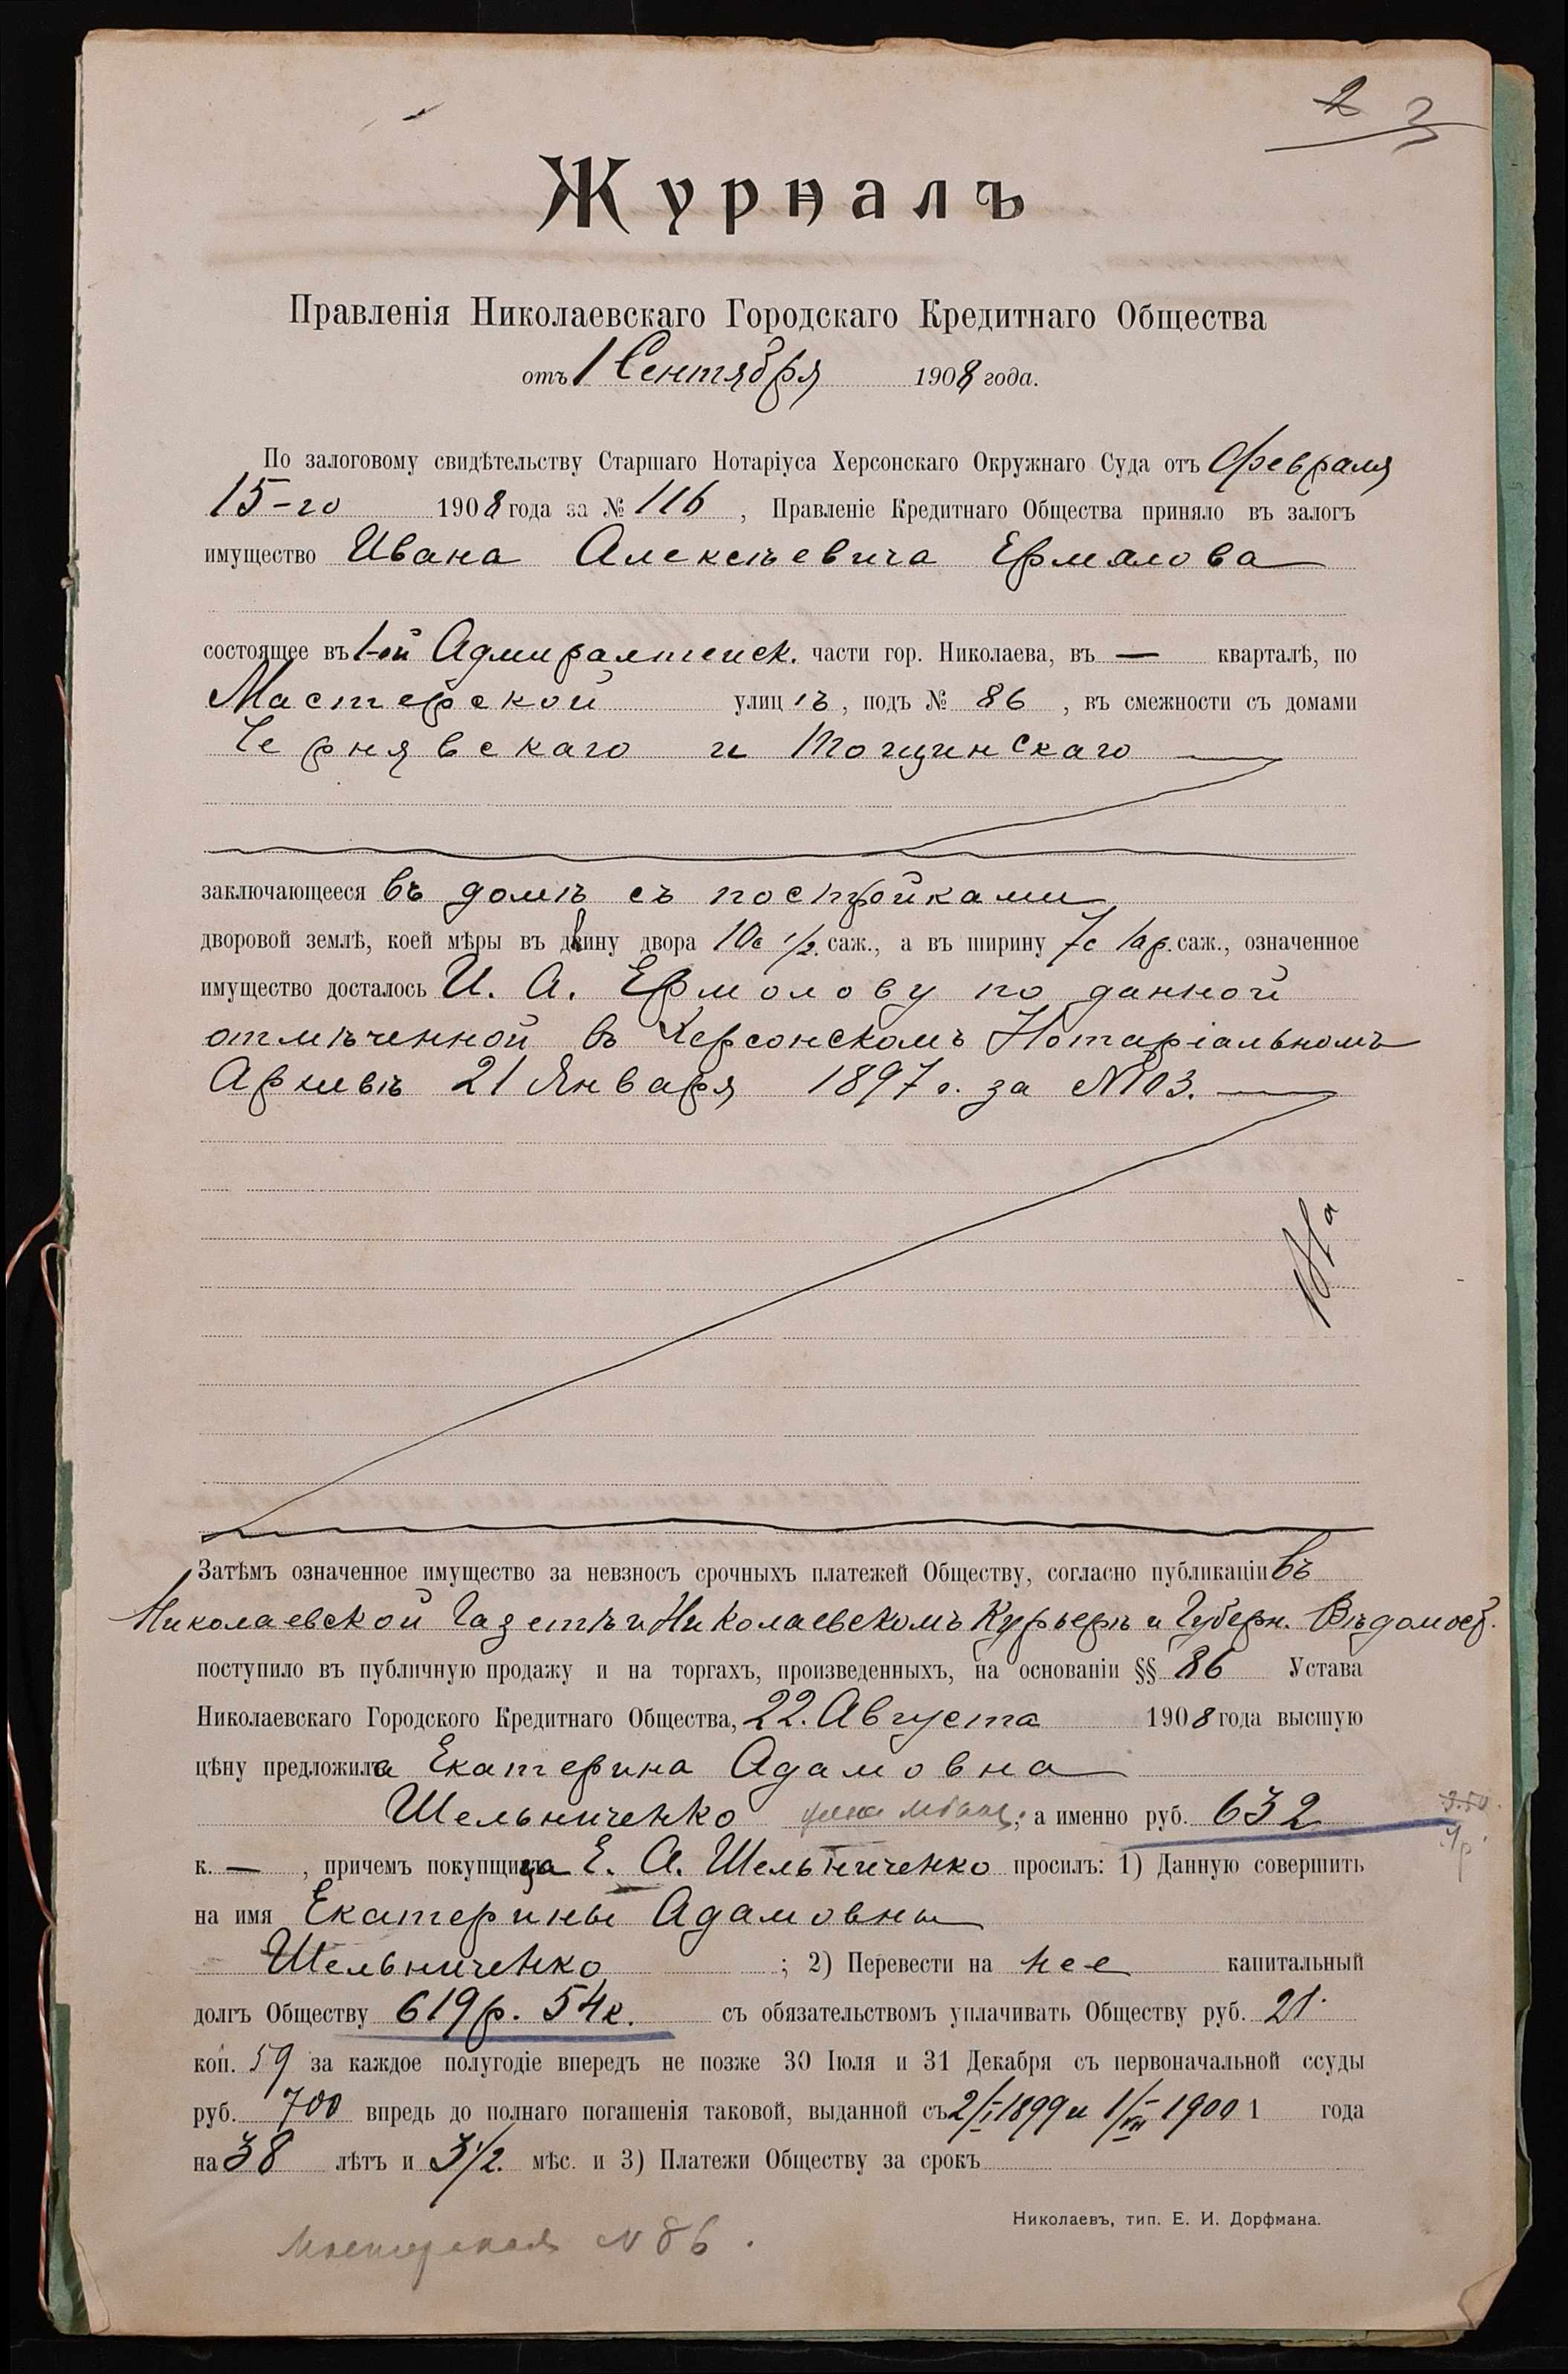 2 3
Журналъ
Правленія Николаевскаго Городскаго Кредитнаго Общества
отъ 1 Сентября 1908 года.
По залоговому свидѣтельству Старшаго Нотаріуса Херсонскаго Окружнаго Суда отъ Февраля
15-го 1908 года за № 116, Правленіе Кредитнаго Общества приняло въ залогъ
имущество Ивана Алексѣевича Ермолова
состоящее въ 1-ой Адмиралтейск. части гор. Николаева, въ — кварталѣ, по
Мастерской улицѣ, подъ № 86, въ смежности съ домами
Чернявскаго и Тощинскаго
заключающееся въ домѣ съ постройками
дворовой землѣ, коей мѣры въ длину двора 10с 1/2. саж., а въ ширину 7с 1ар. саж., означенное
имущество досталось И. А. Ермолову по данной
отмѣченной въ Херсонскомъ Нотаріальномъ
Архивѣ 21 Января 1897 г. за №103.
Затѣмъ означенное имущество за невзносъ срочныхъ платежей Обществу, согласно публикаціи въ
Николаевской Газетѣ и Николаевскомъ Курьерѣ и Губерн. Вѣдомост.
поступило въ публичную продажу и на торгахъ, произведенныхъ, на основаніи §§ 86 Устава
Николаевскаго Городского Кредитнаго Общества, 22. Августа 1908 года высшую
цѣну предложила Екатерина Адамовна
Шельниченко ; а именно руб. 632
к. —, причемъ покупщица Е. А. Шельниченко просилъ: 1) Данную совершить
на имя Екатерины Адамовны
Шельниченко ; 2) Перевести на нее капитальный
долгъ Обществу 619р. 54к. съ обязательствомъ уплачивать Обществу руб. 21.
коп. 59 за каждое полугодіе впередъ не позже 30 Іюля и 31 Декабря съ первоначальной ссуды
руб. 700 впредь до полнаго погашенія таковой, выданной съ 2/I 1899 и 1/VIII 1900 1 года
на 38 лѣтъ и 3 1/2. мѣс. и 3) Платежи Обществу за срокъ
Николаевъ, тип. Е. И. Дорфмана.
Мастерская № 86.